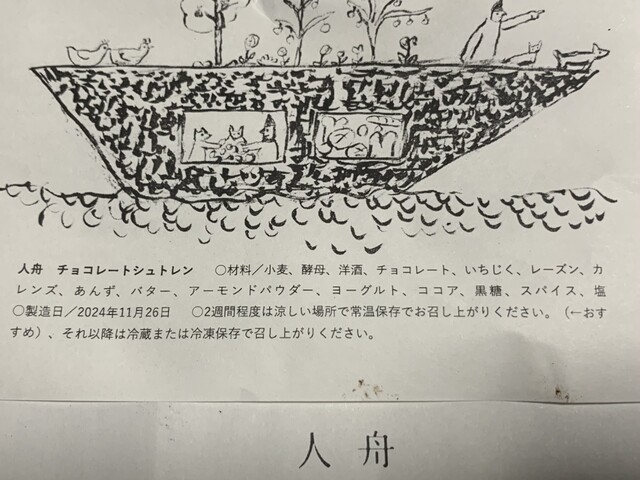 人舟　チョコレートシュトレン　○材料／小麦、酵母、洋酒、チョコレート、いちじく、レーズン、カ
レンズ、あんず、バター、アーモンドパウダー、ヨーグルト、ココア、黒糖、スパイス、塩
○製造日／2024年11月26日　○2週間程度は涼しい場所で常温保存でお召し上がりください。（←おす
すめ）、それ以降は冷蔵または冷凍保存で召し上がりください。
人舟